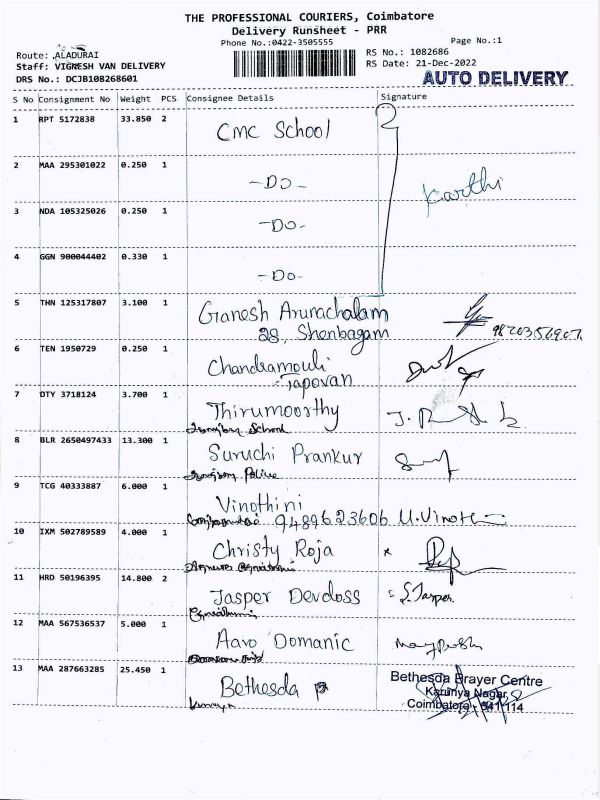 THE PROFESSIONAL COURIERS, Coimbatore
Delivery Runsheet - PRR
Phone No.:0422-3505555
Page No.:1
Route: ALADURAI
RS No.: 1082686
Staff: VIGNESH VAN DELIVERY
RS Date: 21-Dec-2022
DRS No.: DCJB108268601
AUTO DELIVERY
S No Consignment No Weight PCS Consignee Details Signature
1 RPT 5172838 33.850 2 CMC School
2 MAA 295301022 0.250 1 -Do- Karthi
3 NDA 105325026 0.250 1 -Do-
4 GGN 900044402 0.330 1 -Do-
5 THN 125317807 3.100 1 Ganesh Arunachalam
28, Shenbagam 9820356907
6 TEN 1950729 0.250 1 Chandramouli
Tapovan
7 DTY 3718124 3.700 1 Thirumoorthy
School
8 BLR 2650497433 13.300 1 Suruchi Prankur
Police
9 TCG 40333887 6.000 1 Vinothini
9489623606 U.Vinoth
10 IXM 502789589 4.000 1 Christy Roja
11 HRD 50196395 14.800 2 Jasper Devdoss S.Jasper
12 MAA 567536537 5.000 1 Aavo Domanic
13 MAA 287663285 25.450 1 Bethesda
Bethesda Prayer Centre
Karunya Nagar
Coimbatore - 641 114